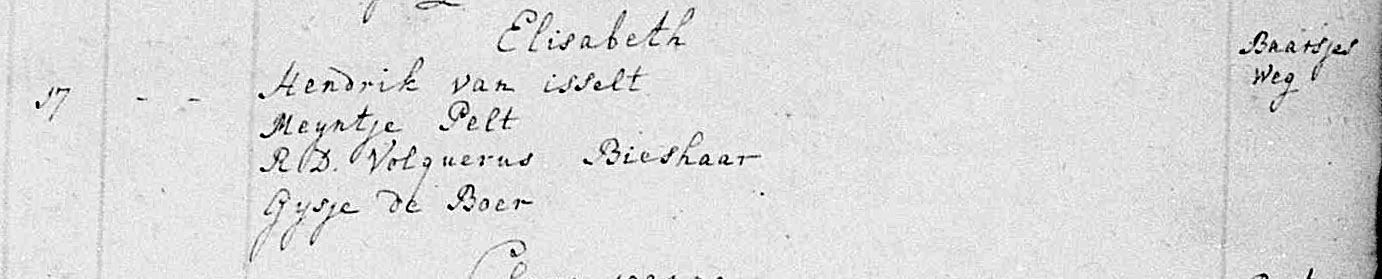 Elisabeth
Baarsjes
Weg
17 - - Hendrik van isselt
Meyntje Pelt
R D. Volquerus Bieshaar
Gysje de Boer